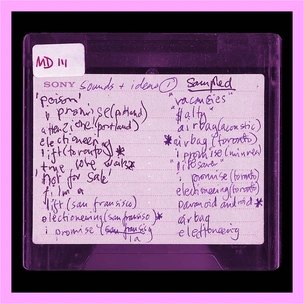 MD 111
SONY sounds + ideas 1 Sampled
'poison'
promise (portland)
attention! (portland)
electioneering
lift (toronto) *
true love waits *
'not for sale'
lift (san fransisco)
electioneering (san fransiso) *
i promise (san fransis
"vacancies"
airbag (acoustic)
*airbag (toronto)
i promise (
lifesaver"
i promise (toronto)
electioneering (toronto)
paranoid android *
airbag
electioneering